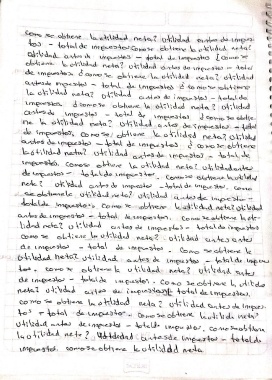 como se obtiene la utilidad neta? utilidad antes de impues
tos - total de impuestos como se obtiene la utilidad neta?
utilidad antes de impuestos - total de impuestos ¿como se
obtiene la utilidad neta? utilidad antes de impuestos - total
de impuestos ¿como se obtiene la utilidad neta? utilidad
antes de impuestos - total de impuestos ¿como se obtiene
la utilidad neta? utilidad antes de impuestos - total de
impuestos. ¿como se obtiene la utilidad neta? utilidad
antes de impuestos - total de impuestos ¿como se obtie
ne la utilidad neta? utilidad antes de impuestos - total
de impuestos, como se obtiene la utilidad neta? utilidad
antes de impuestos - total de impuestos. ¿como se obtiene
la utilidad neta? utilidad antes de impuestos - total de
impuestos. como se obtiene la utilidad neta? utilidad antes
de impuestos - total de impuestos. como se obtiene la utilidad
neta? utilidad antes de impuestos - total de impuestos. como
se obtiene la utilidad neta? utilidad antes de impuestos -
total de impuestos - como se obtiene la utilidad neta? utilidad
antes de impuestos - total de impuestos. como se obtiene la uti-
lidad neta? utilidad antes de impuestos - total de impuestos
como se obtiene la utilidad neta? utilidad antes
de impuestos - total de impuestos - como se obtiene la
utilidad neta? utilidad antes de impuestos - total de impues
tos. como se obtiene la utilidad neta? utilidad antes
de impuestos - total de impuestos. como se obtiene la utilida
neta? utilidad antes de impuestos total de impuestos,
como se obtiene la utilidad neta? utilidad antes de impues
tos - total de impuestos - como se obtiene la utilidad neta?
utilidad antes de impuestos - total de impuestos, como se obtiene
la utilidad neta? utilidad antes de impuestos - total de
impuestos. como se obtiene la utilidad neta.